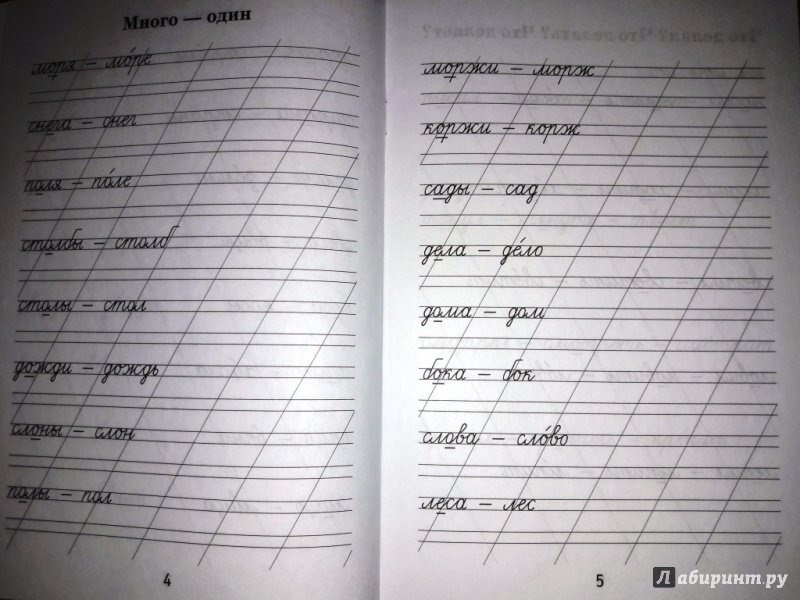 Много — один
моря — мо́ре
снега — снег
поля — по́ле
столбы — столб
столы — стол
дожди — дождь
слоны — слон
полы — пол
4
моржи — морж
коржи — корж
сады — сад
дела — де́ло
дома — дом
бока — бок
слова — сло́во
леса — лес
5
Лабиринт.ру